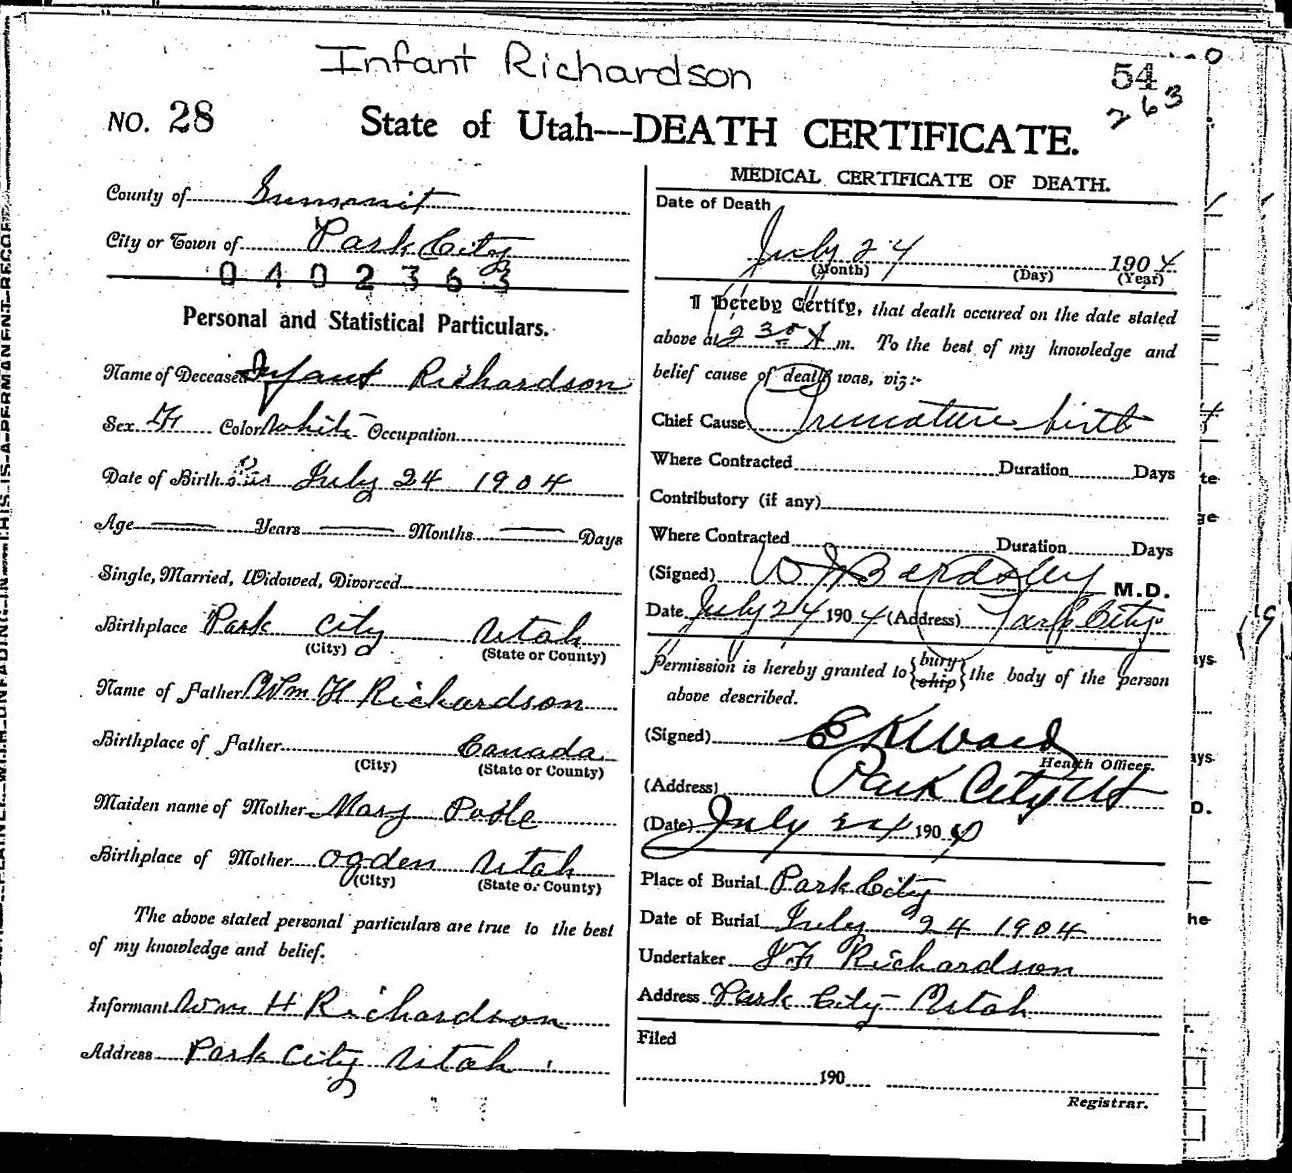 Infant Richardson
54
263
NO. 28
State of Utah---DEATH CERTIFICATE.
County of Summit
City or Town of Park City
0402363
Personal and Statistical Particulars.
Name of Deceased Infant Richardson
Sex Color White Occupation
Date of Birth July 24 1904
Age Years Months Days
Single, Married, Widowed, Divorced
Birthplace Park City Utah
(City) (State or County)
Name of Father Wm H Richardson
Birthplace of Father Canada
(City) (State or County)
Maiden name of Mother Mary
Birthplace of Mother Ogden Utah
(City) (State or County)
The above stated personal particulars are true to the best
of my knowledge and belief.
Informant Wm H Richardson
Address Park City Utah
MEDICAL CERTIFICATE OF DEATH.
Date of Death
July 24 1904
(Month) (Day) (Year)
I hereby Certify, that death occured on the date stated
above at 2 30 A m. To the best of my knowledge and
belief cause of death was, viz:-
Chief Cause Premature birth
Where Contracted Duration Days
Contributory (if any)
Where Contracted Duration Days
(Signed) W J Bardsley M.D.
Date July 24 1904 (Address) Park City
Permission is hereby granted to {bury ship} the body of the person
above described.
(Signed) E K Ward
Health Officer.
(Address) Park City Ut
(Date) July 24 1904
Place of Burial Park City
Date of Burial July 24 1904
Undertaker Richardson
Address Park City Utah
Filed
190
Registrar.